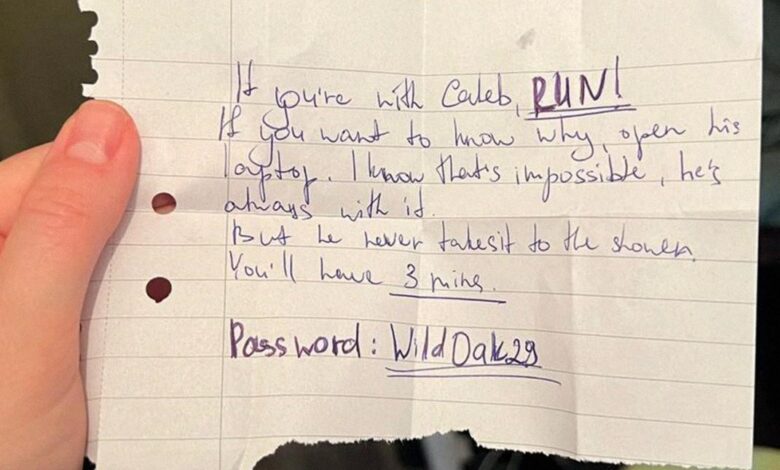 If you're with Caleb, RUN!
If you want to know why, open his
laptop. I know that's impossible, he's
always with it.
But he never takes it to the shower.
You'll have 3 mins.
Password: WildOak29